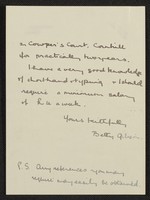 in Cowper's Court, Cornhill
for practically two years,
I have a very good knowledge
of shorthand & typing & I should
require a minimum salary
of a week.
Yours faithfully
Betty
P.S. Any references you may
require may easily be obtained